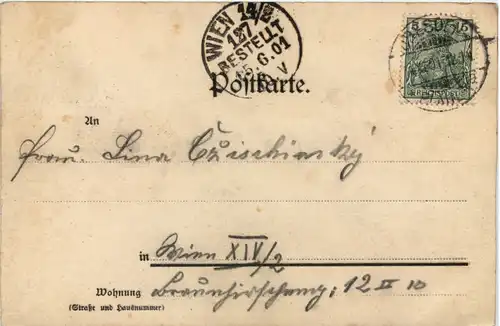 WIEN 14/2
127
BESTELLT
5.6.01
V
Postkarte.
An
Frau Lina
in Wien XIV/2
Wohnung
12 II 10
(Straße und Hausnummer)